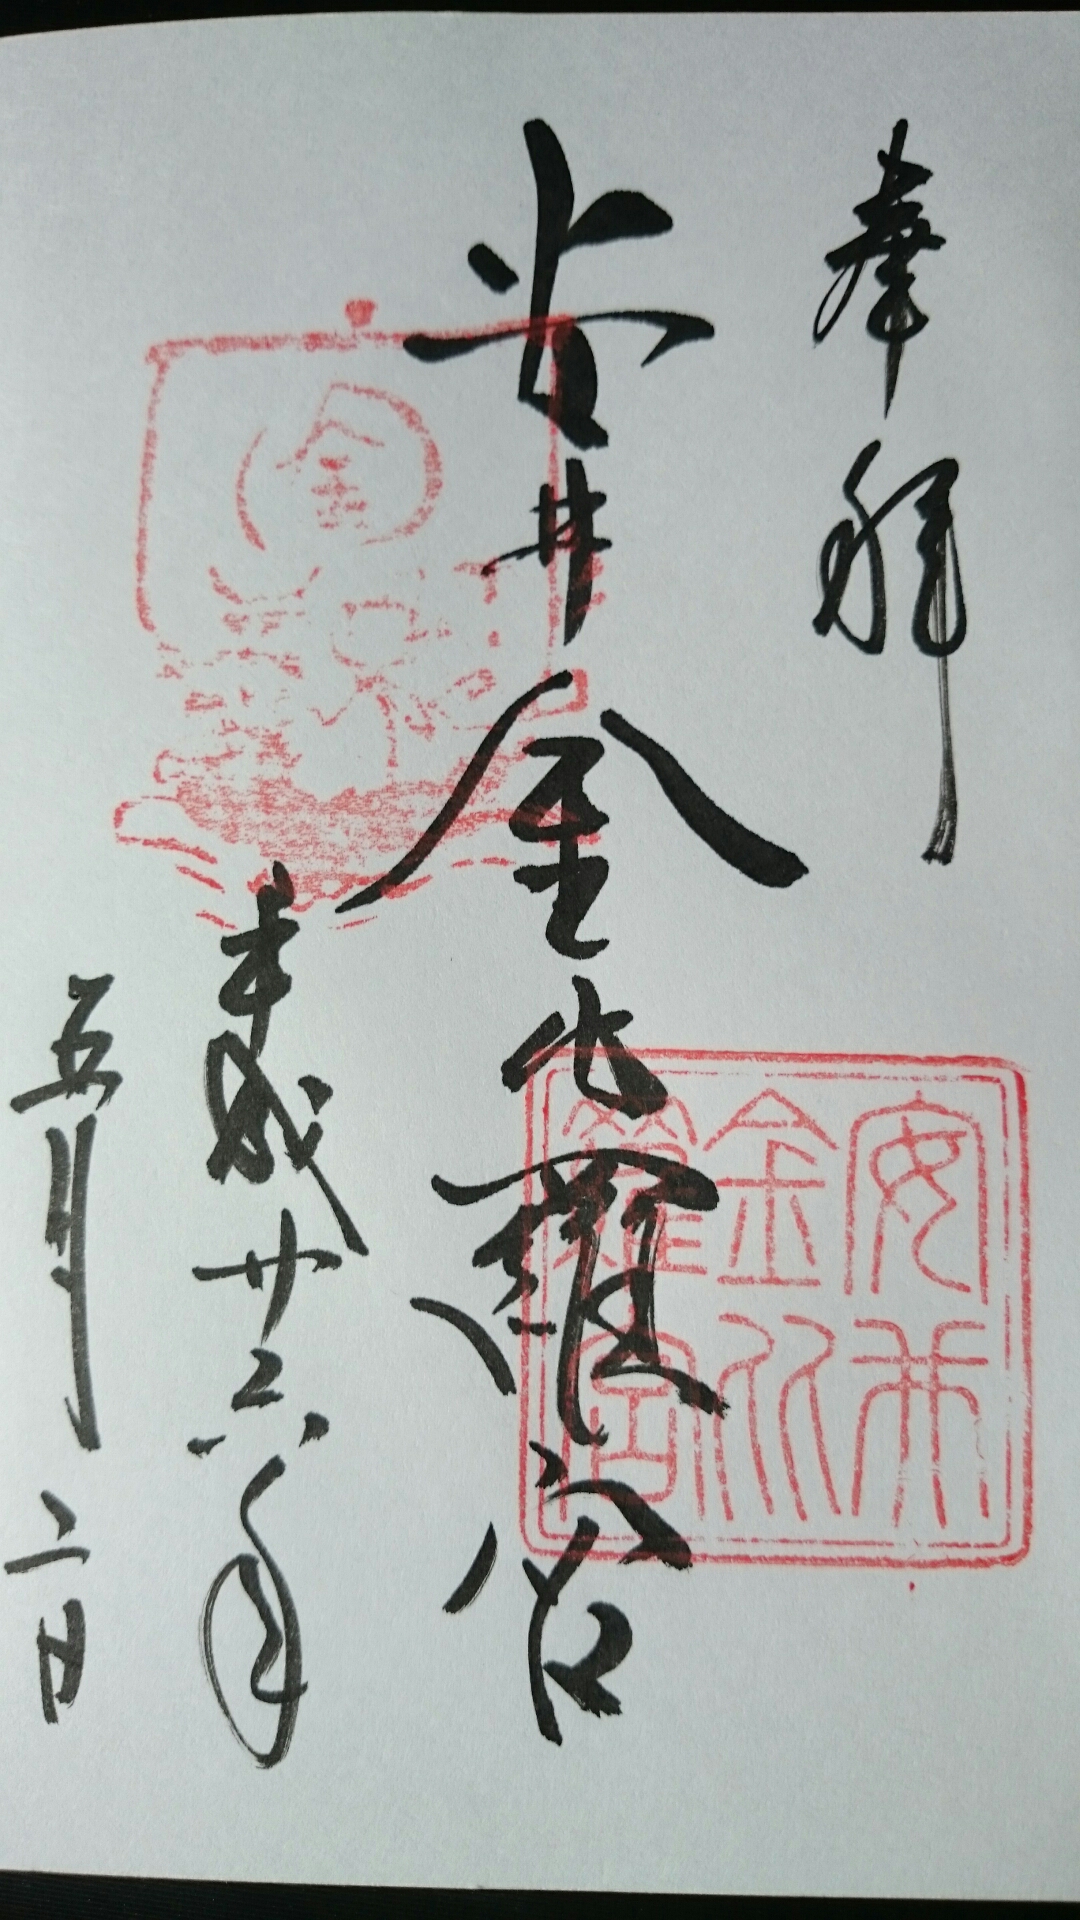 奉拝
安井金比羅宮
平成廿六年
五月二日
安井
金比
羅宮
金